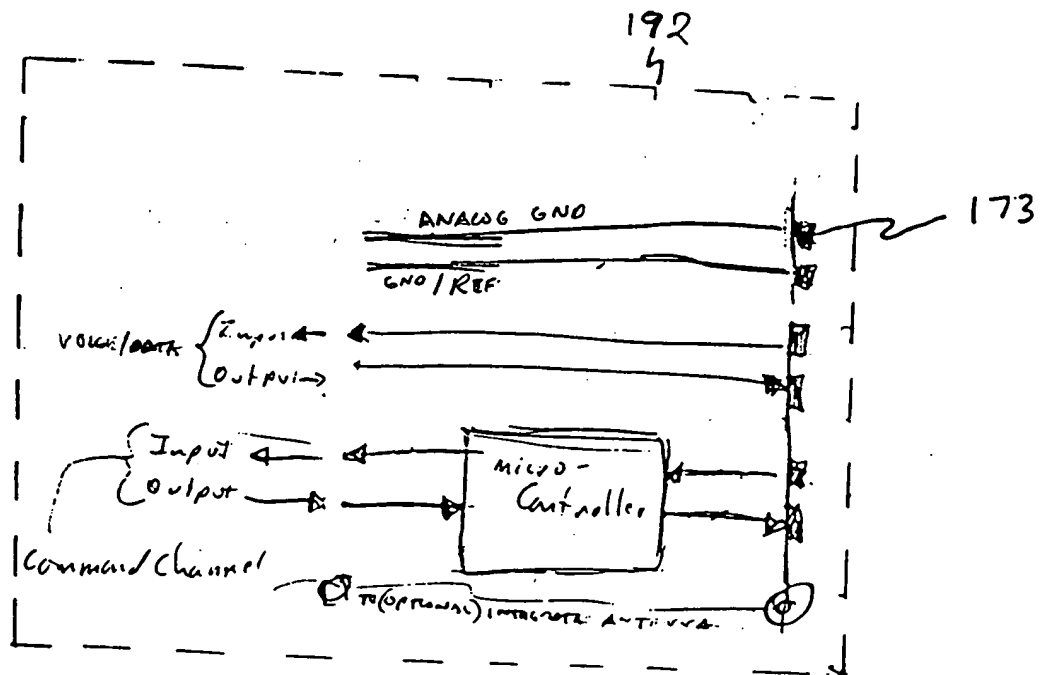 192
ANALOG GND
173
GND/REF
VOICE/DATA
Input
Output
Input
Output
Micro-
Controller
Command Channel
TO (OPTIONAL) INTEGRATE ANTENNA